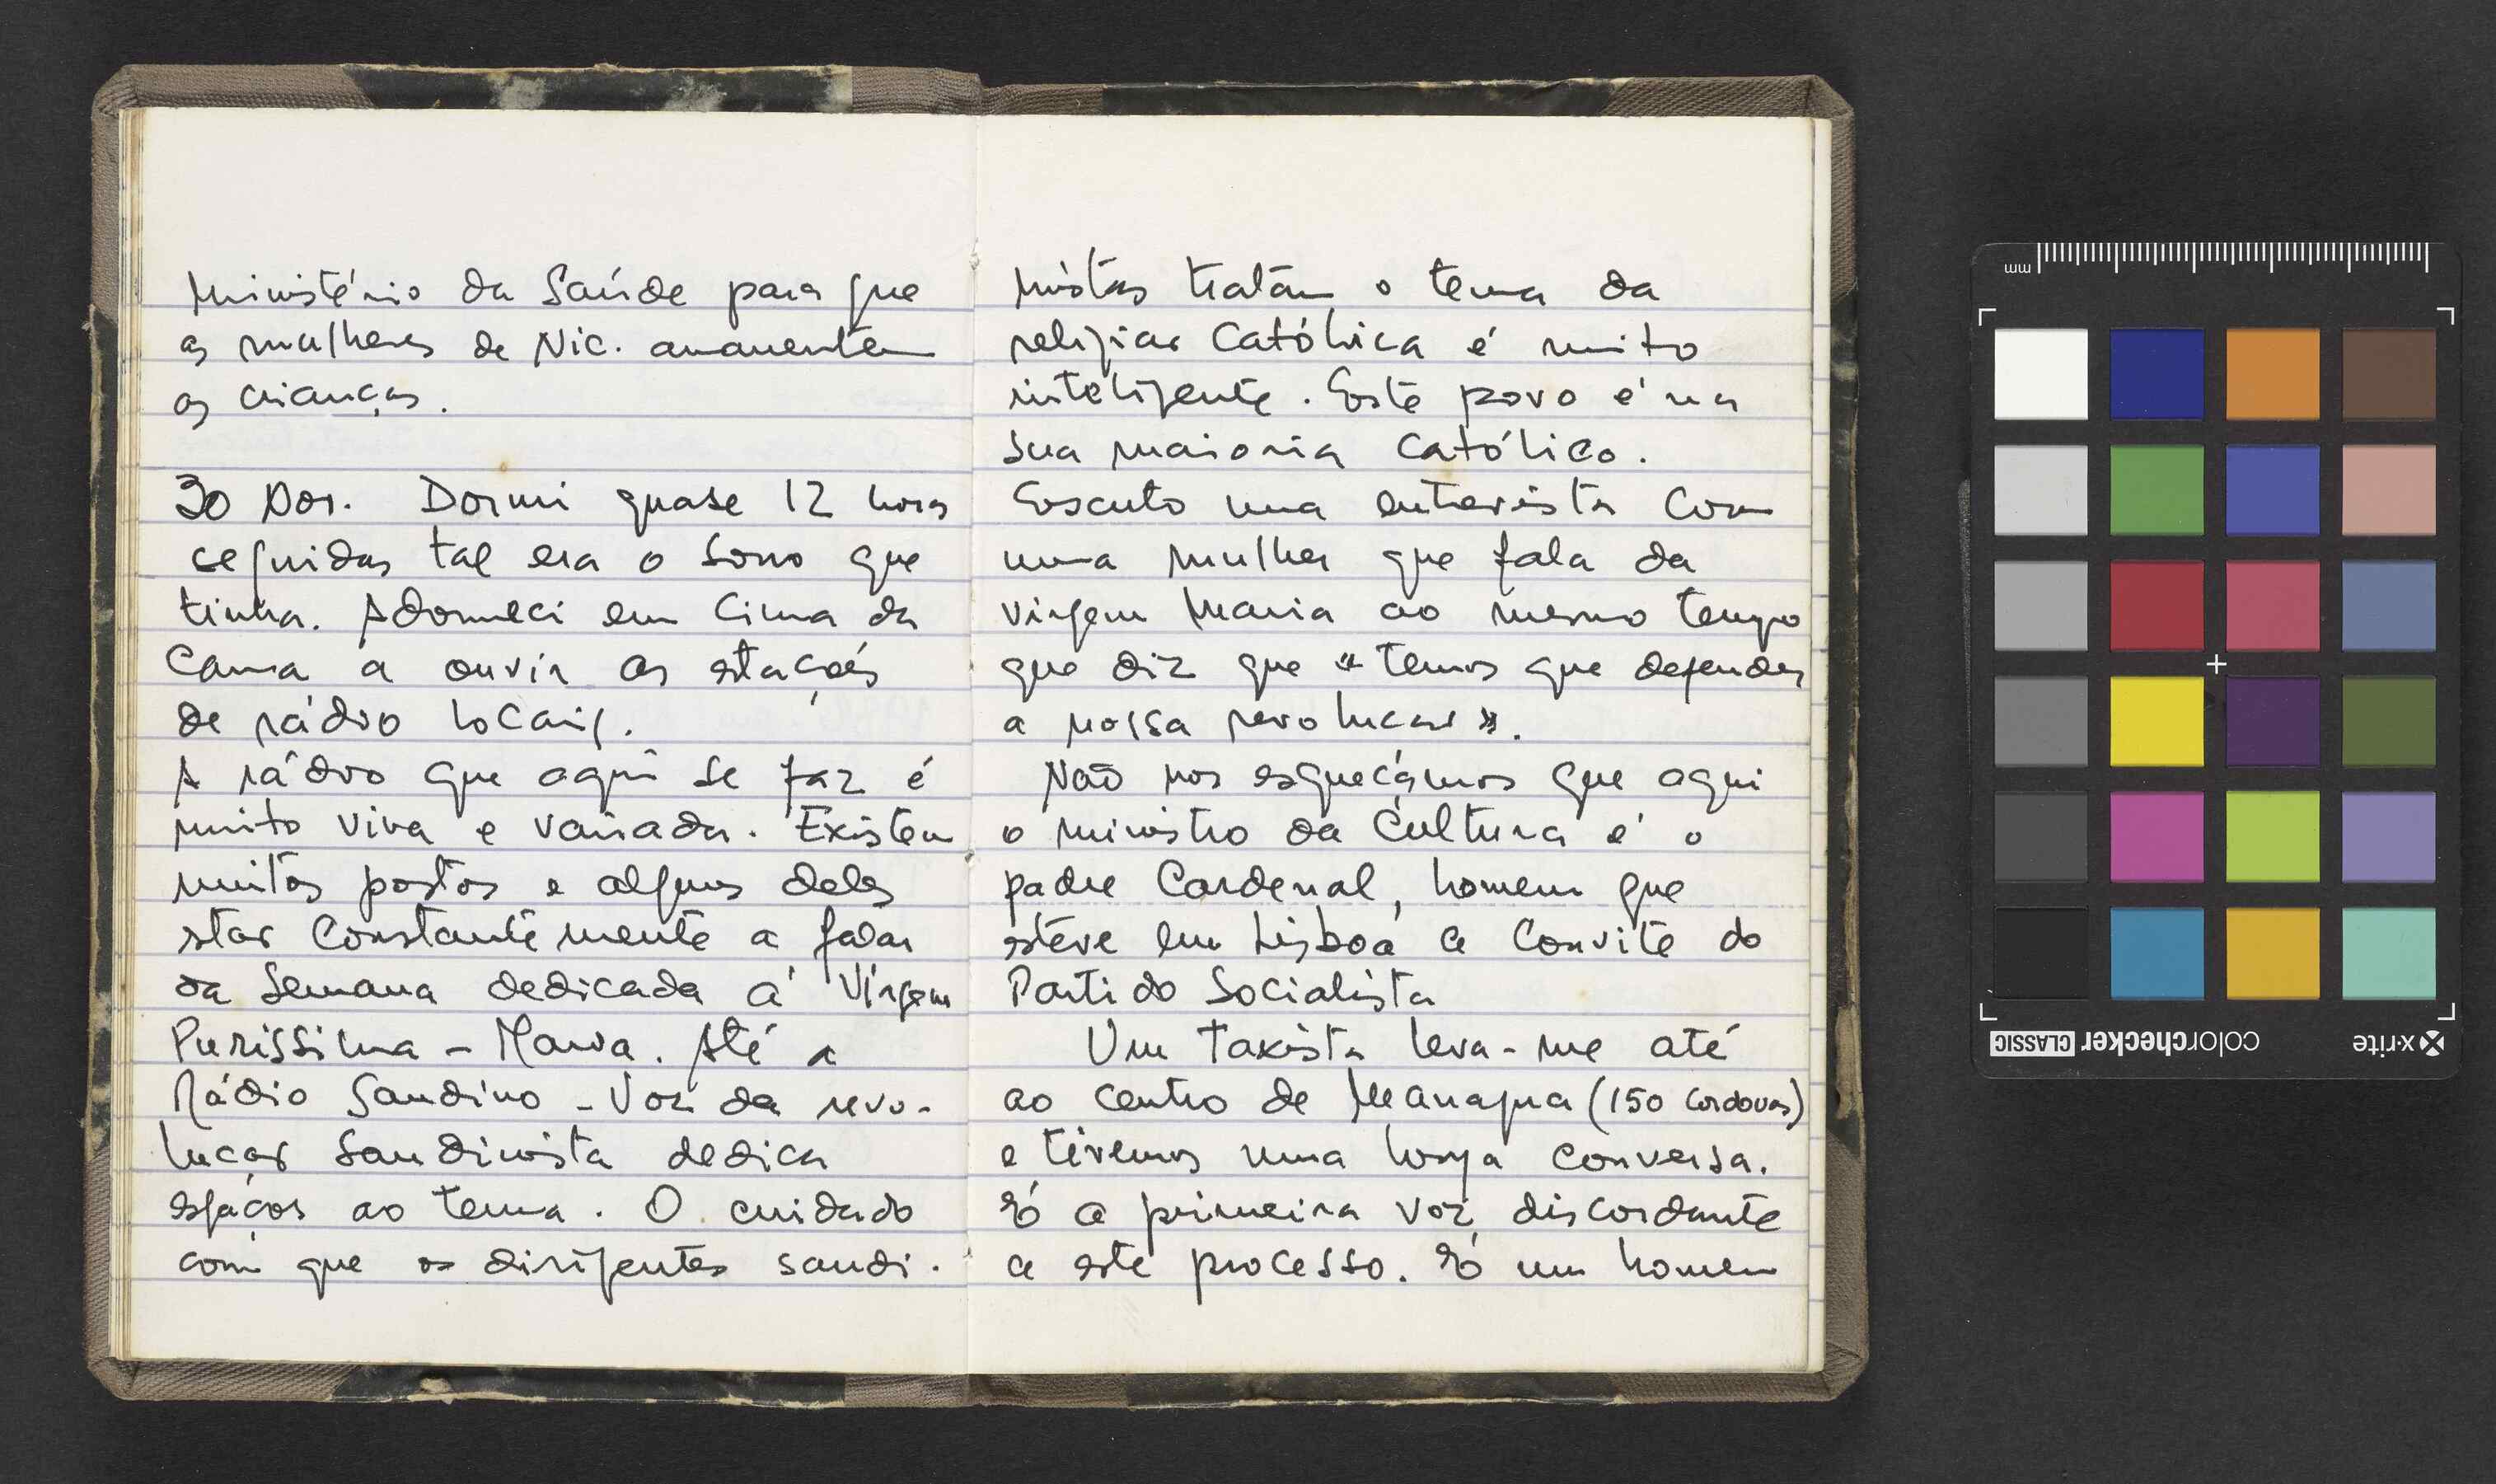 Ministério da Saúde para que
as mulheres de Nic. amamentem
as crianças.
30 Nov. Dormi quase 12 horas
seguidas tal era o sono que
tinha. Adormeci em cima da
cama a ouvir as estações
de rádio locais.
A rádio que aqui se faz é
muito viva e variada. Existem
muitos postos e alguns deles
estão constantemente a falar
da semana dedicada à Virgem
Puríssima - Maria. Até a
Rádio Sandino - Voz da revo-
lução Sandinista dedica
espaços ao tema. O cuidado
com que os dirigentes sandi-
nistas tratam o tema da
religião Católica é muito
inteligente. Este povo é na
sua maioria católico.
Escuto uma entrevista com
uma mulher que fala da
virgem Maria ao mesmo tempo
que diz que «temos que defender
a nossa revolução».
Não nos esqueçamos que aqui
o ministro da Cultura é o
padre Cardenal, homem que
esteve em Lisboa a convite do
Partido Socialista
Um taxista leva-me até
ao centro de Managua (150 cordovas)
e tivemos uma longa conversa.
É a primeira voz discordante
a este processo. É um homem
mm
x-rite colorchecker CLASSIC